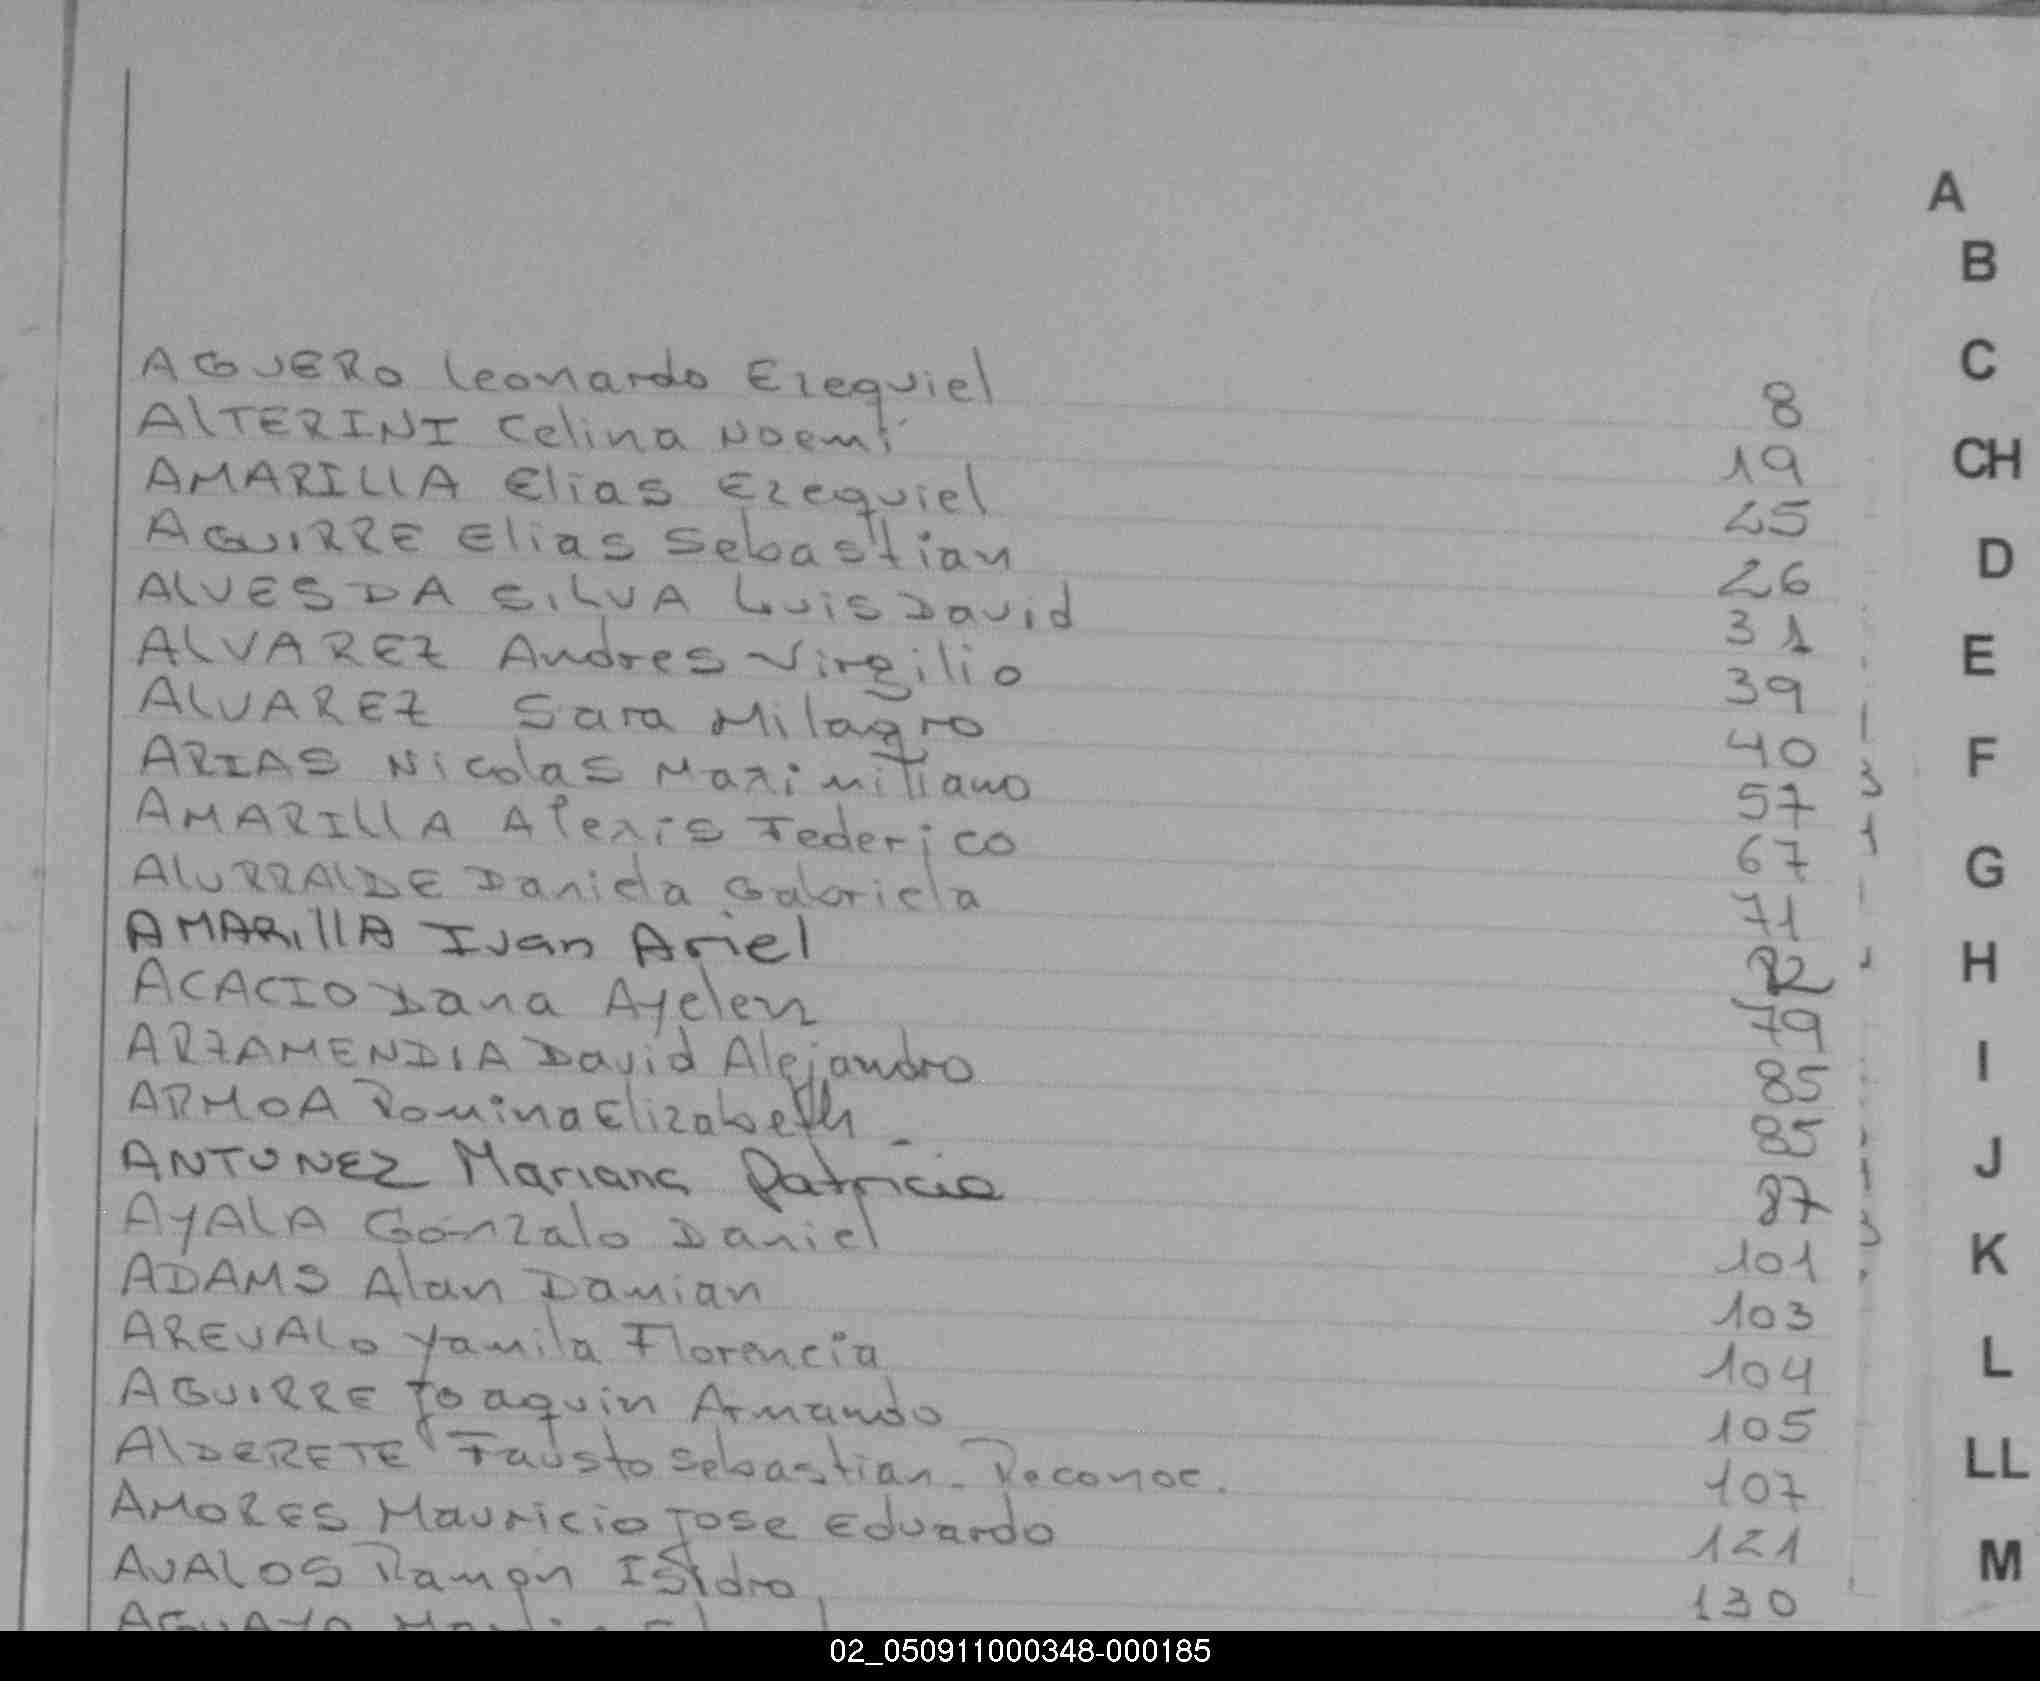 AGUERO Leonardo Ezequiel 8
AlTERINI Celina Noemí 19
AMARILLA Elias Ezequiel 25
AGUIRRE Elias Sebastian 26
ALVES DA SILVA Luis David 31
ALVAREZ Andres Virgilio 39
ALVAREZ Sara Milagro 40
ARIAS Nicolas Maximiliano 57
AMARIllA Alexis Federico 67
AlURRAlDE Daniela Gabriela 71
AMARillA Ivan Ariel
ACACIO Dana Ayelen 79
ARZAMENDIA David Alejandro 85
ARMOA Romina Elizabeth 85
ANTUNEZ Mariana Patricia 87
AYALA Gonzalo Daniel 101
ADAMS Alan Damian 103
AREVALO Yamila Florencia 104
AGUIRRE Joaquin Armando 105
AlDERETE Fausto Sebastian - Reconoc. 107
AMORES Mauricio Jose Eduardo 121
AVALOS Ramon Isidro 130
A
B
C
CH
D
E
F
G
H
I
J
K
L
LL
M
02_050911000348-000185